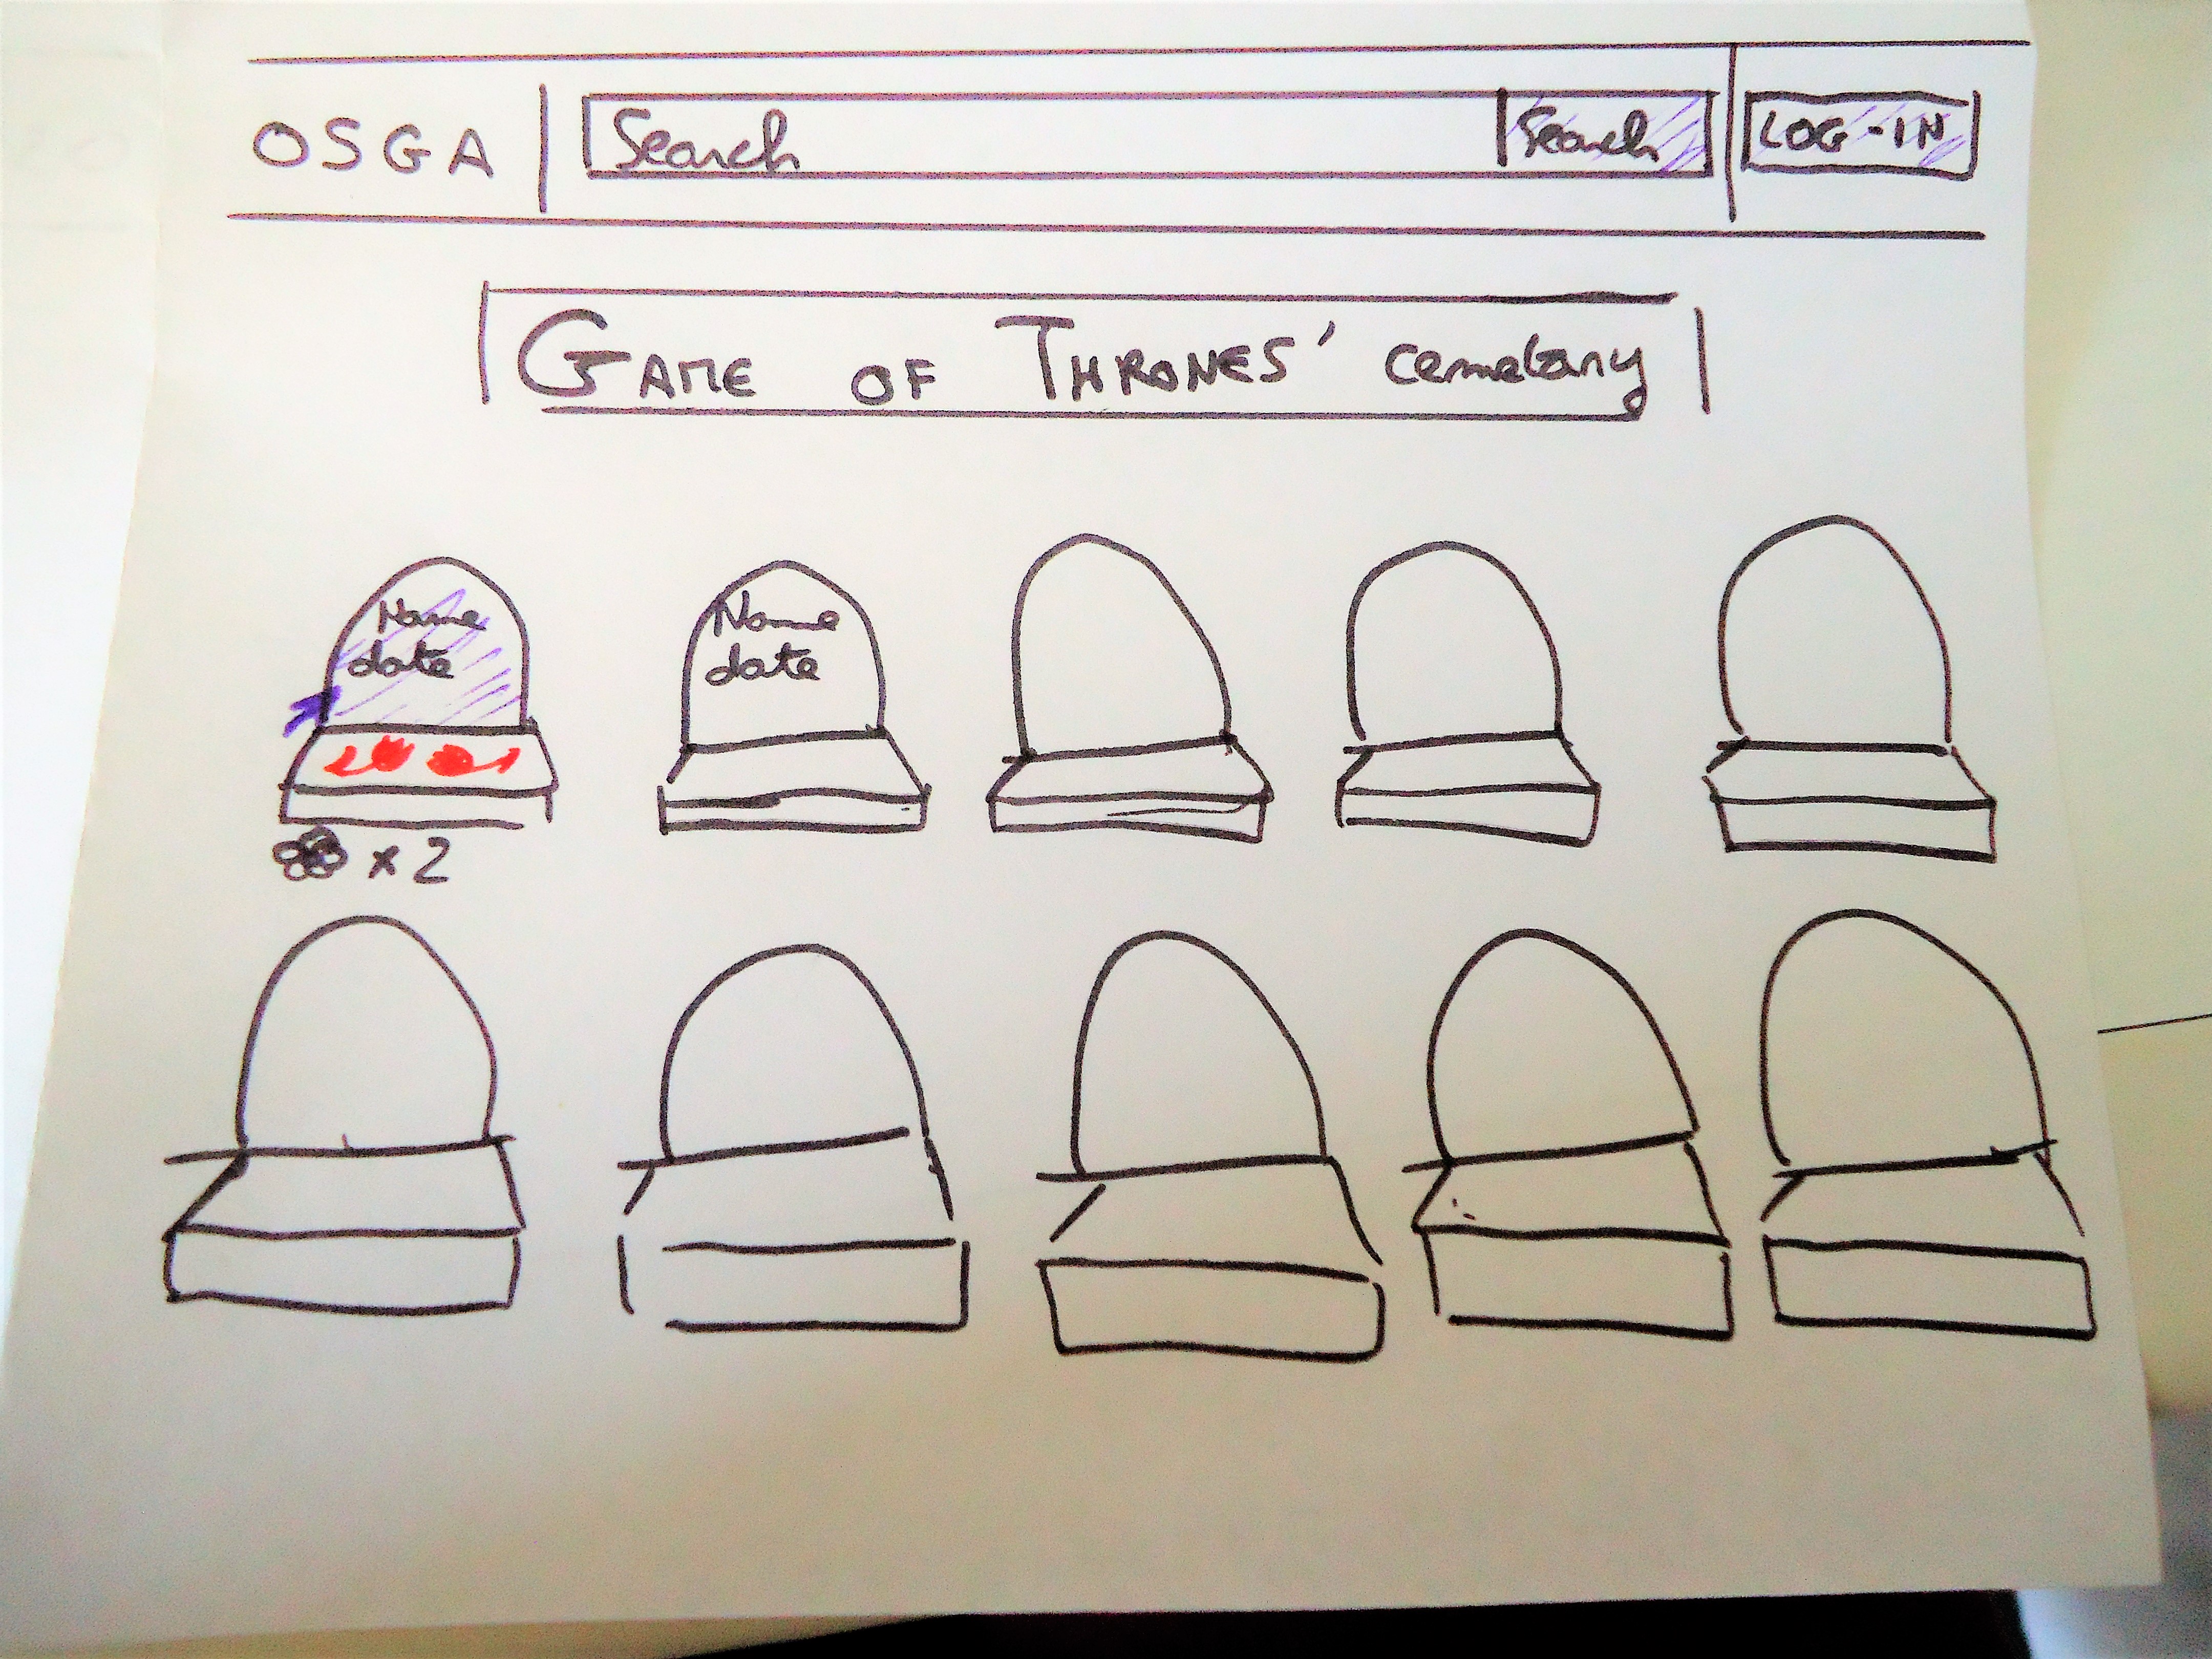 OSGA Search Search LOG-IN
GAME OF THRONES' cemetary
Name
date
Name
date
x 2